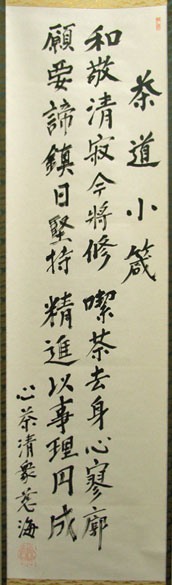 茶道小箴
和敬清寂今将修 喫茶去身心寥廓
願要諦鎮日堅持 精進以事理円成
心茶清衆慈海